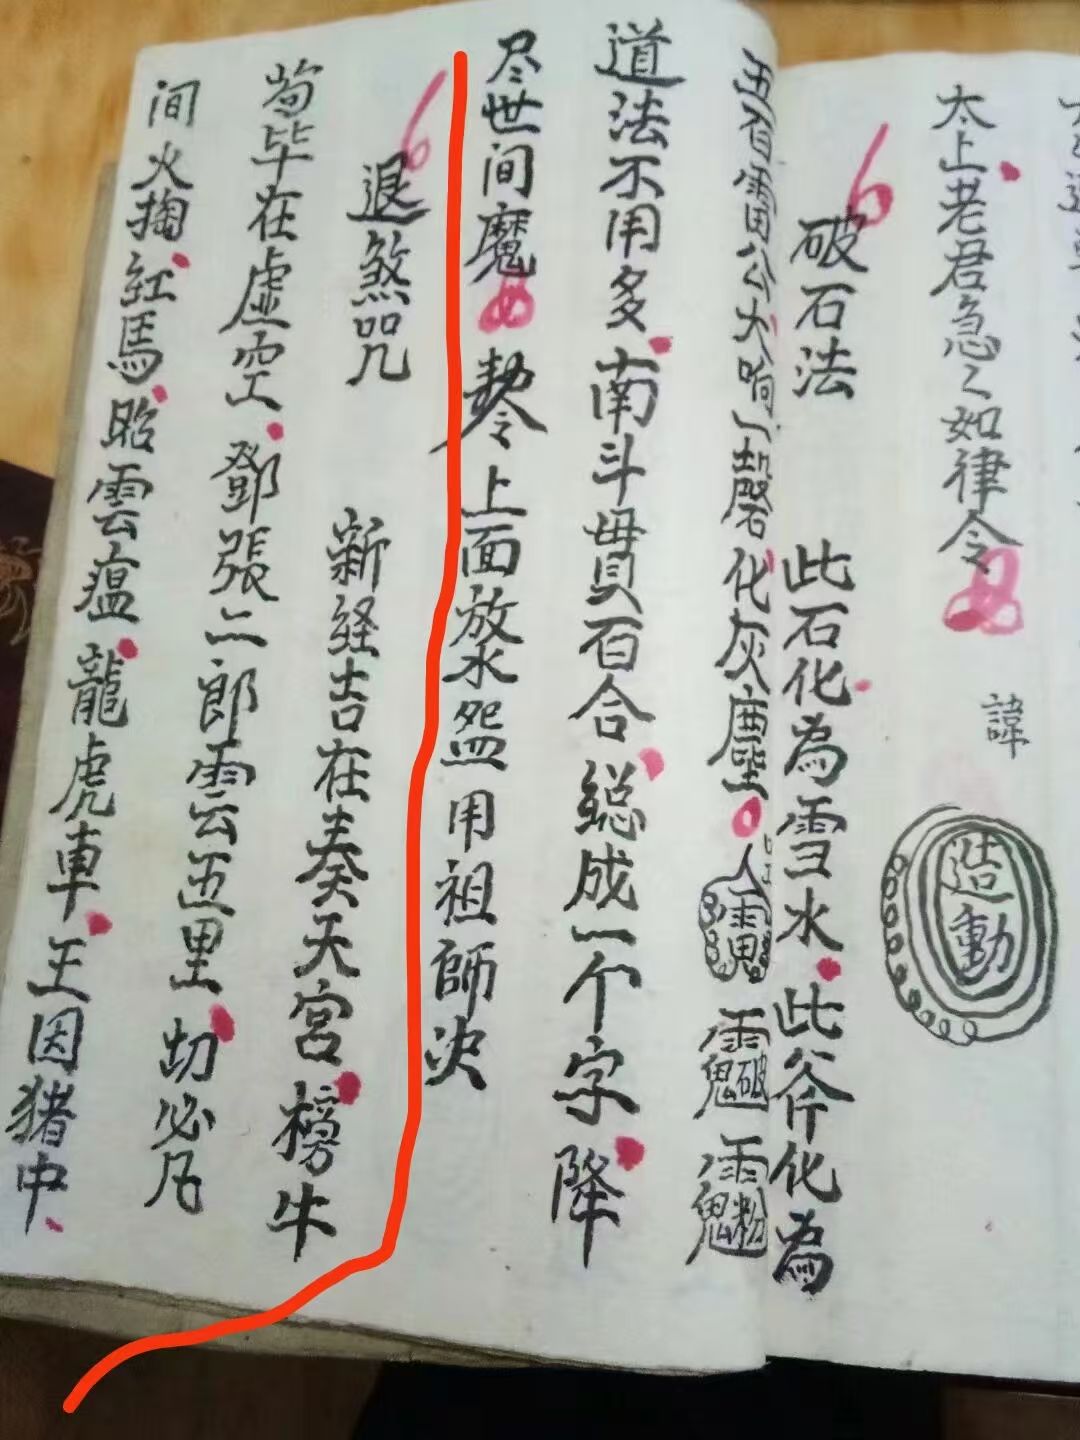 太上老君急々如律令
諱
造動
破石法
此石化為雪水此斧化為
五百雷公大响一声化灰塵
道法不用多南斗貫百合総成一个字降
尽世间魔
上面放水盌用祖師决
退煞咒
新経吉在奏天宮榜牛
苟毕在虚空鄧張二郎雲五里切必凡
间火掏紅馬昭雲瘟龍虎車王因猪中